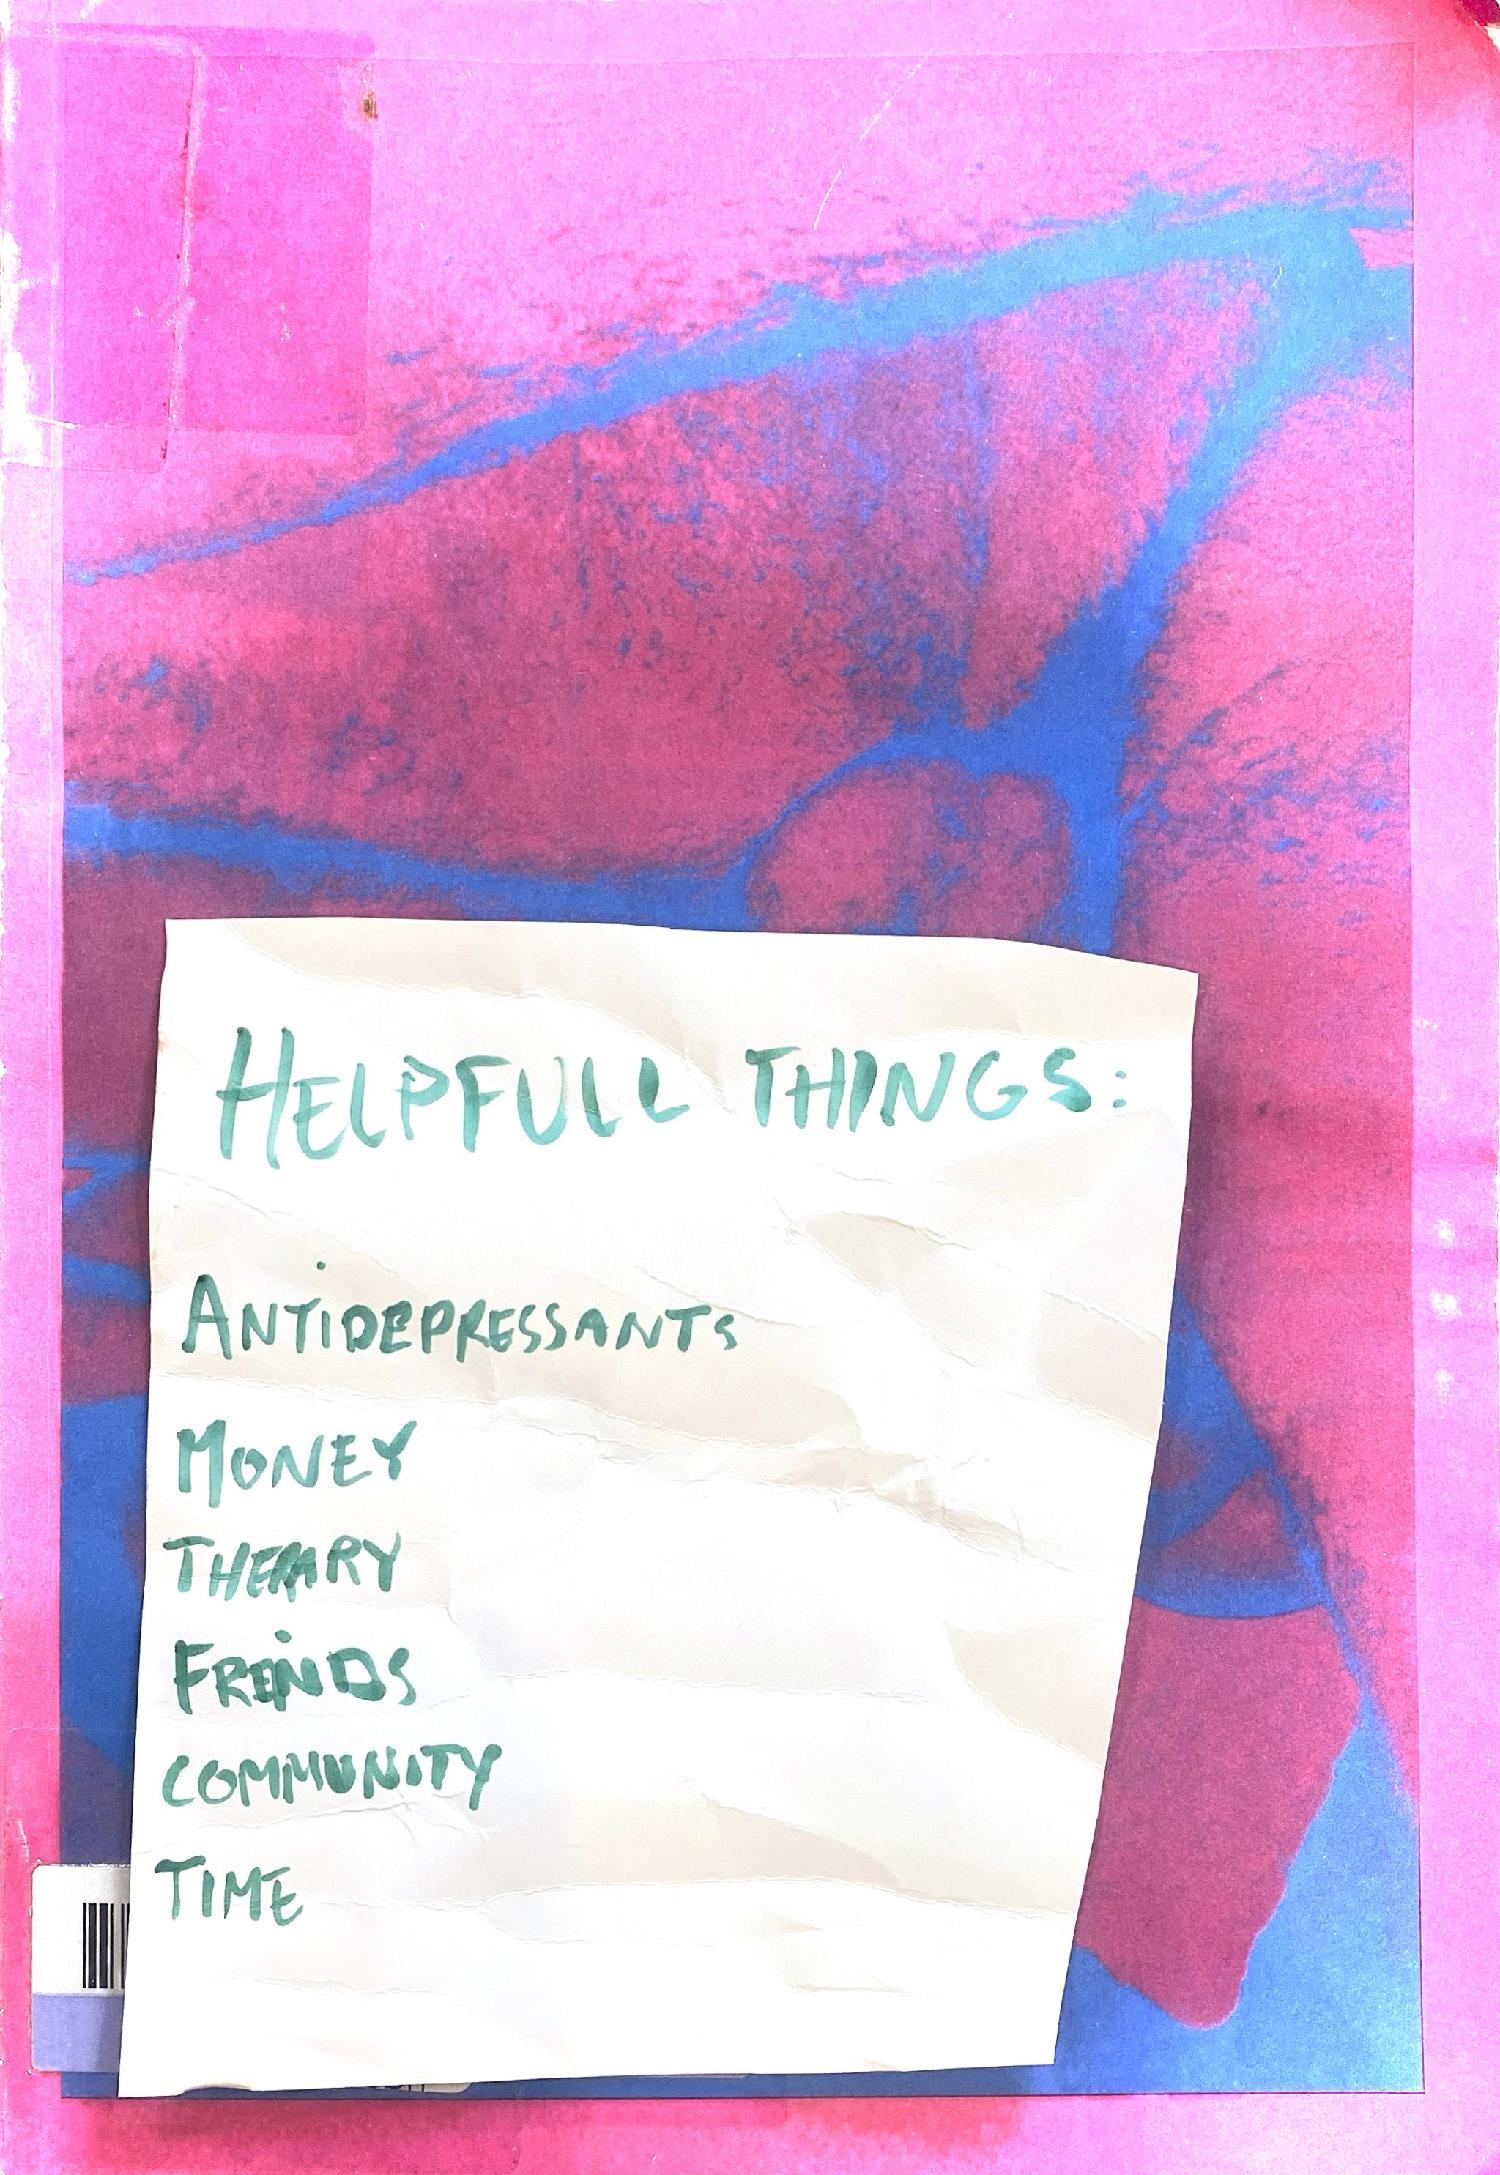 HELPFULL THINGS:
ANTIDEPRESSANTS
MONEY
THERARY
FREINDS
COMMUNITY
TIME